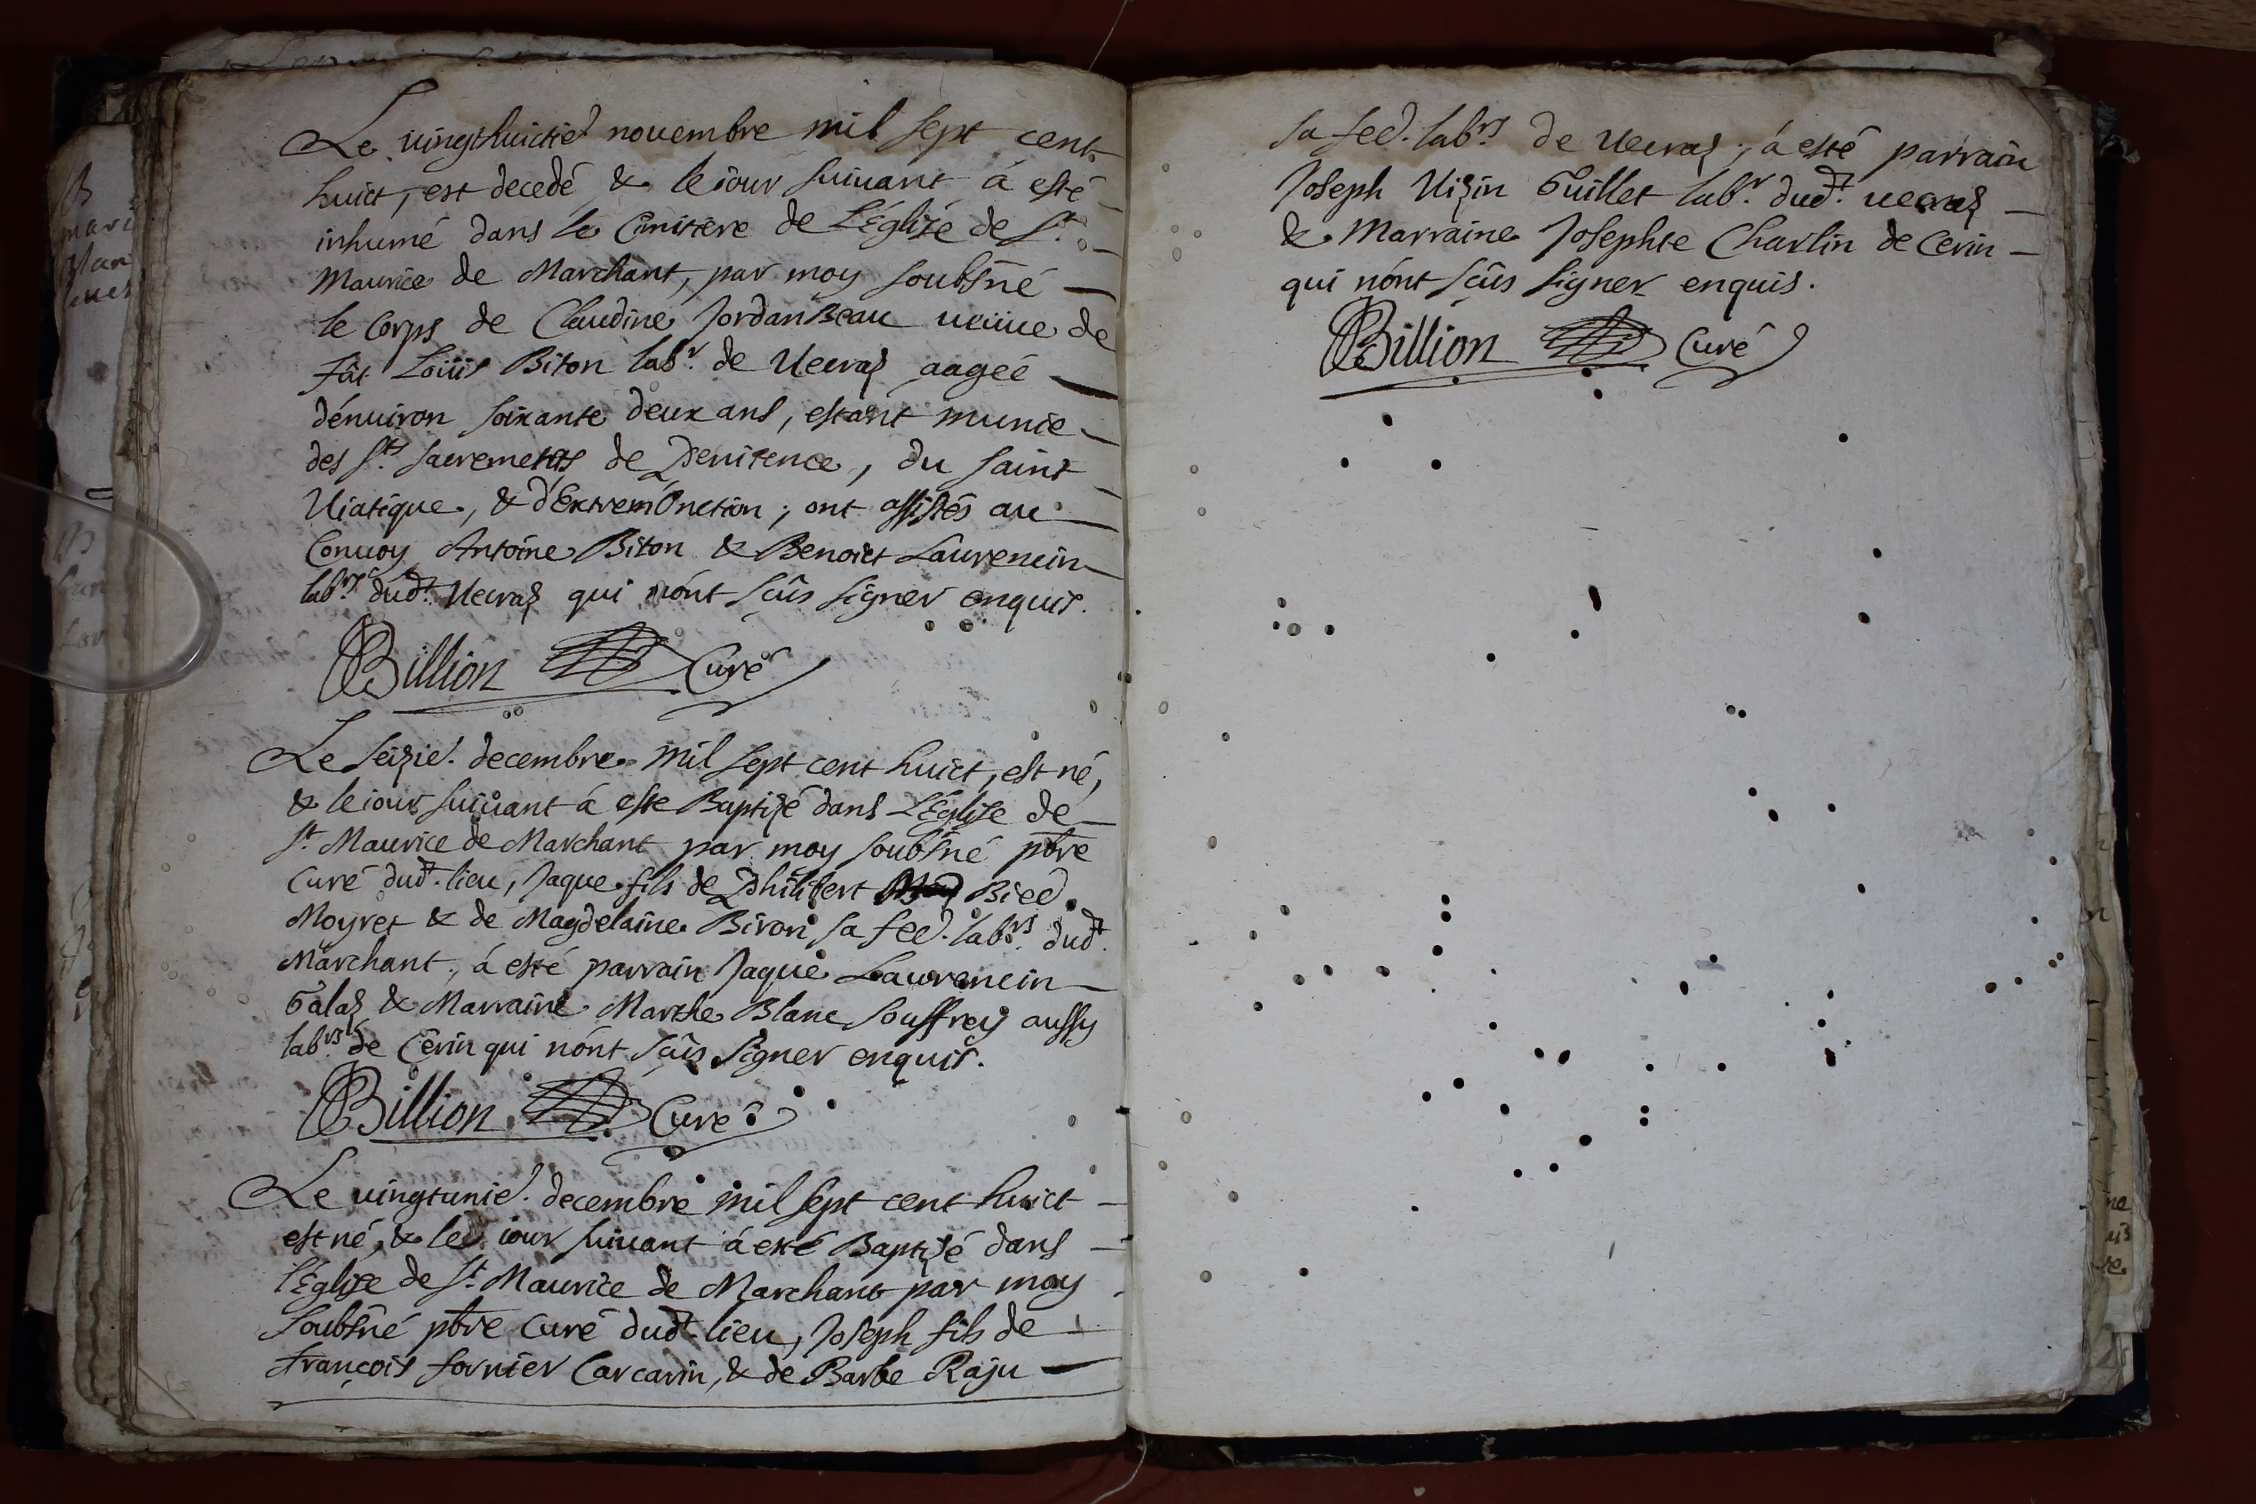 Le vingthuictie. novembre mil sept cent
huict, est decedé & le iour suivant á esté
inhumé dans le Cimitiere de L'Eglise de St.
Maurice de Marchant, par moy soubsné
le Corps de Claudine Jordan Beau veuve de
fût Loüis Biton labr. de Vecraz aagée
d'énuiron soixante deux ans, estant munie
des Sts. sacrements de Penitence, du saint
Viatique, & d'Extrem'Onction; ont assistés au
Convoy Antoine Biton & Benoict Laurencin
labrs. dudt. Vecraz qui n'ónt sçûs signer enquis.
Billion Curé
Le seizie. decembre mil sept cent huict, est né,
& le iour suivant á este Baptizé dans L'Eglise de
St. Maurice de Marchant par moy soubsné pbre
Curé dudt. lieu, Jaque fils de Philibert Bied
Moyret & de Magdelaine Biron sa fee. labrs. dudt.
Marchant, á esté parrain Jaque Laurencin
Galaz & Marraine Marthe Blanc Souffrey aussy
labrs. de Cerin qui n'ónt sçûs signer enquis.
Billion Curé
Le vingtunie. decembre mil sept cent huict
est né, & le iour suivant á esté Baptizé dans
l'Eglise de St. Maurice de Marchant par moy
soubsné pbre Curé dudt. lieu, Joseph fils de
françois fornier Carcarin, & de Barbe Raju
sa fee. labrs. de Vecraz; á esté parrain
Joseph Vizin Guillet labr. dudt. vecraz
& Marraine Josephte Charlin de Cerin
qui n'ónt sçûs signer enquis.
Billion Curé